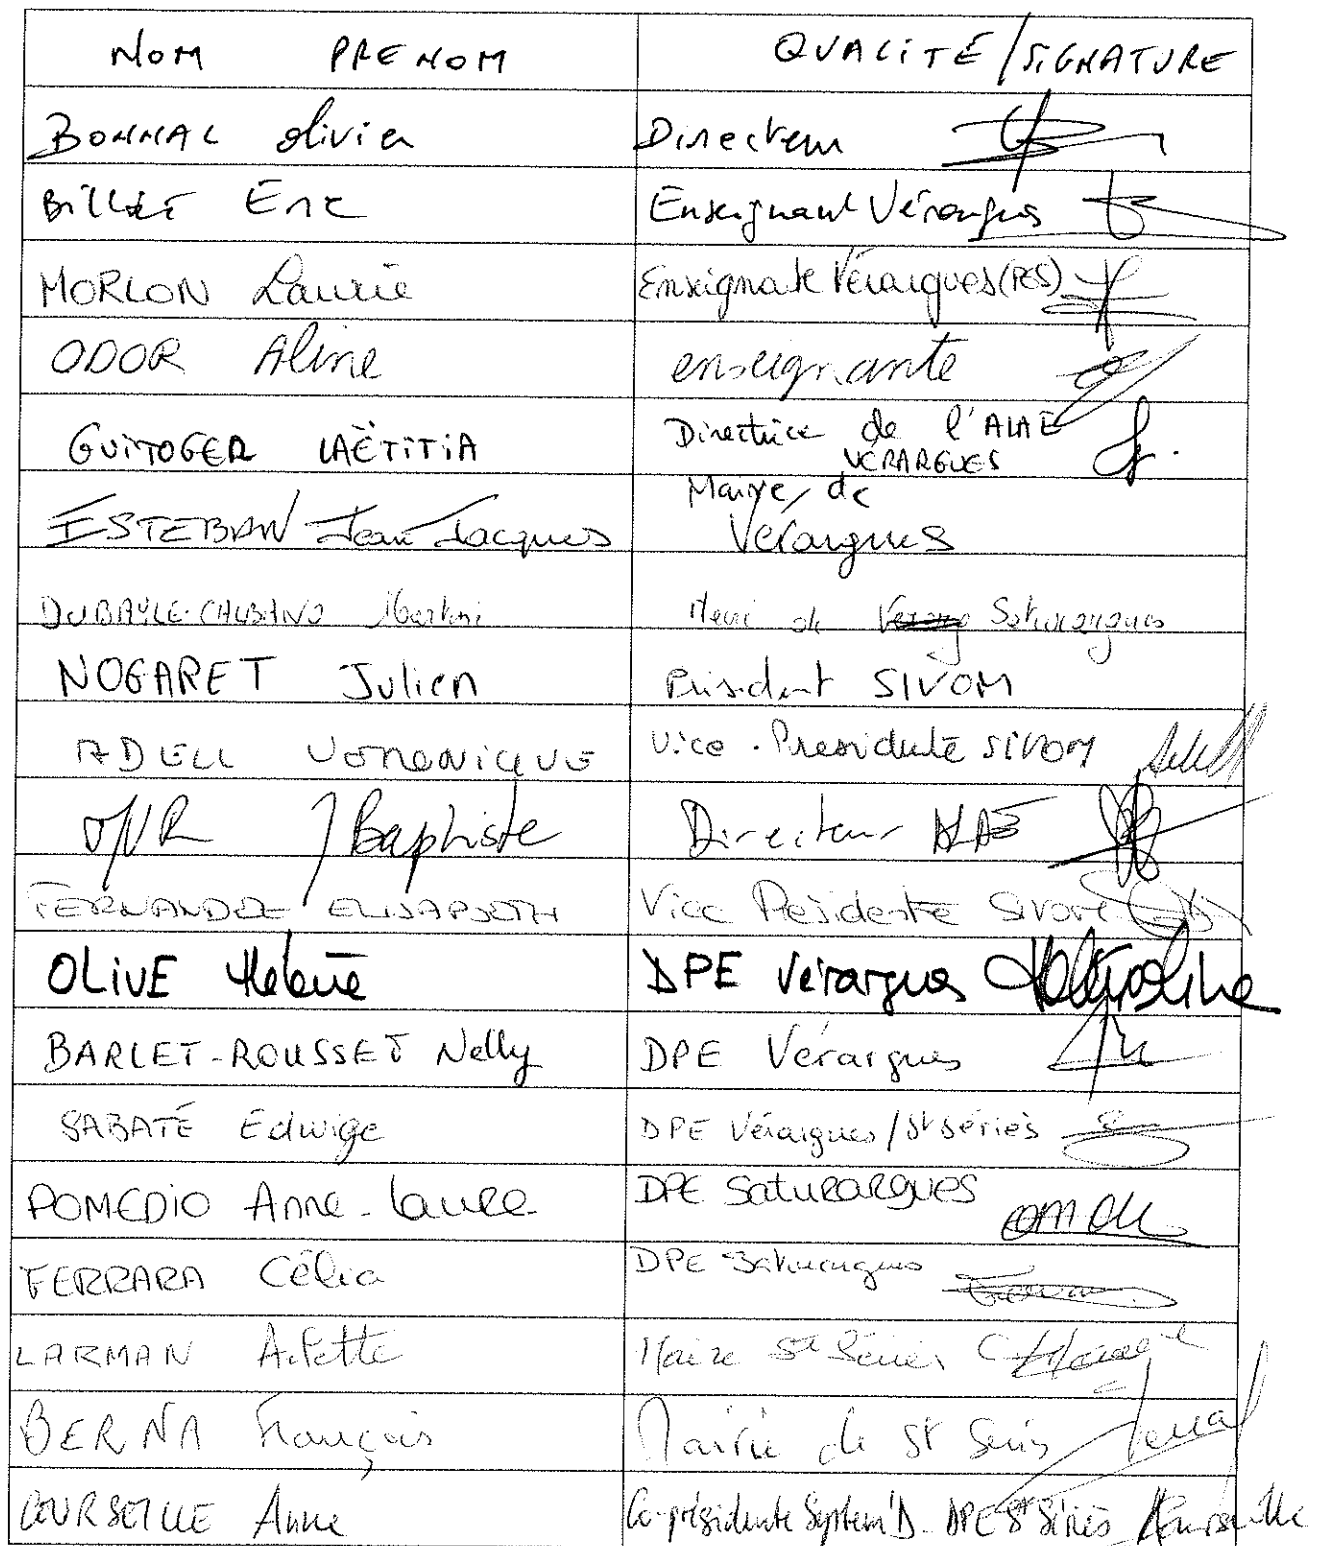 NOM PRENOM QUALITÉ/SIGNATURE
BONNAL Olivier Directeur
BILLET Eric Enseignant Vérargues
MORLON Laurie Enseignante Vérargues (PES)
ODOR Aline enseignante
GUITOGER LAËTITIA Directrice de l'ALAE
VERARGUES
ESTEBAN Jean Jacques Maire de
Vérargues
DUBAYLE-CALBANO Maire de Saturargues
NOGARET Julien Président SIVOM
ADELL Veronique Vice-Presidente SIVOM
J Baptiste Directeur ALAE
FERNANDEZ ELISABETH Vice Présidente Sivom
OLIVE Helene DPE Vérargues
BARLET-ROUSSET Nelly DPE Vérargues
SABATÉ Edwige DPE Vérargues/St Sériès
POMEDIO Anne-Laure DPE Saturargues
FERRARA Célia DPE Saturargues
LARMAN Arlette Maire St Séries
BERNA François Mairie de St Seriès
COURSEILLE Anne Co-présidente System'D - DPE St Sériès